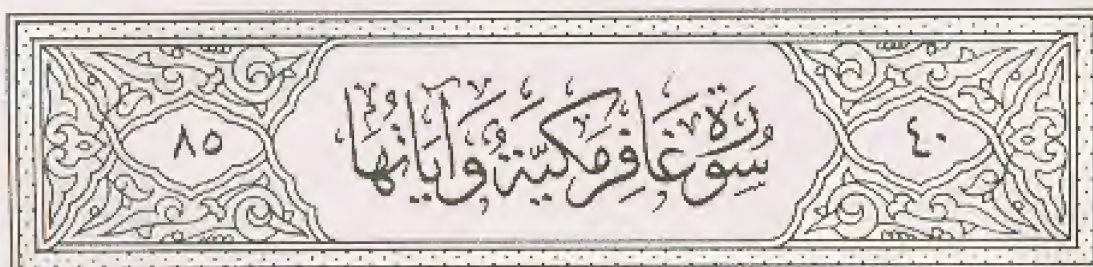 ٤٠
سُورَةُ غَافِرٍ مَكِيَّةٌ وَآيَاتُهَا
٨٥